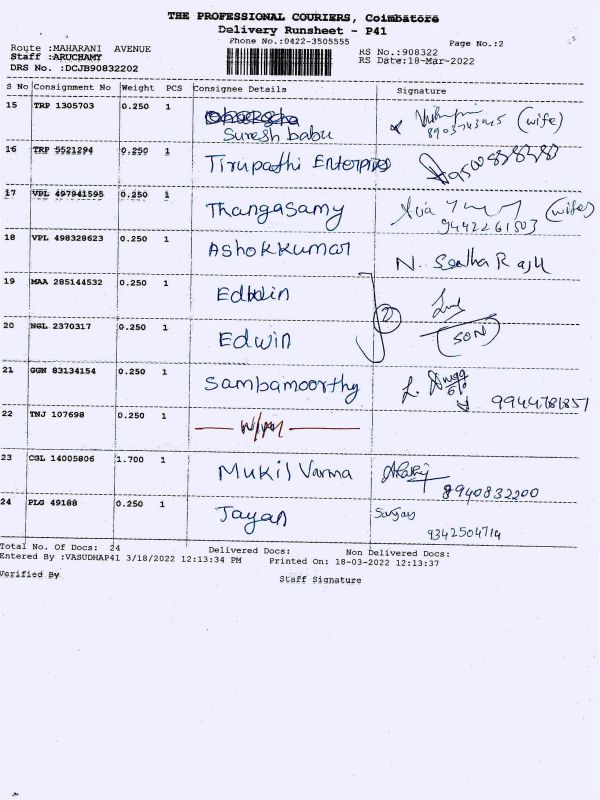 THE PROFESSIONAL COURIERS, Coimbatore
Delivery Runsheet - P41
Phone No.:0422-3505555
Page No.:2
Route :MAHARANI AVENUE
RS No.:908322
Staff :ARUCHAMY
RS Date:18-Mar-2022
DRS No. :DCJB90832202
S No Consignment No Weight PCS Consignee Details Signature
15 TRP 1305703 0.250 1 Suresh babu 8903743045 (wife)
16 TRP 5521294 0.250 1 Tirupathi Enterprises
17 VPL 497941595 0.250 1 Thangasamy 9442261503 (wife)
18 VPL 498328623 0.250 1 Ashok kumar N. Seetha Raju
19 MAA 285144532 0.250 1 Edwin
2
20 NGL 2370317 0.250 1 Edwin (SON)
21 GGN 83134154 0.250 1 Sambamoorthy 9944781851
22 TNJ 107698 0.250 1
23 CGL 14005806 1.700 1 Mukil Varma 8940832200
24 PLG 49188 0.250 1 Jayan Sanjay 9342504714
Total No. Of Docs: 24 Delivered Docs: Non Delivered Docs:
Entered By :VASUDHAP41 3/18/2022 12:13:34 PM Printed On: 18-03-2022 12:13:37
Verified By Staff Signature